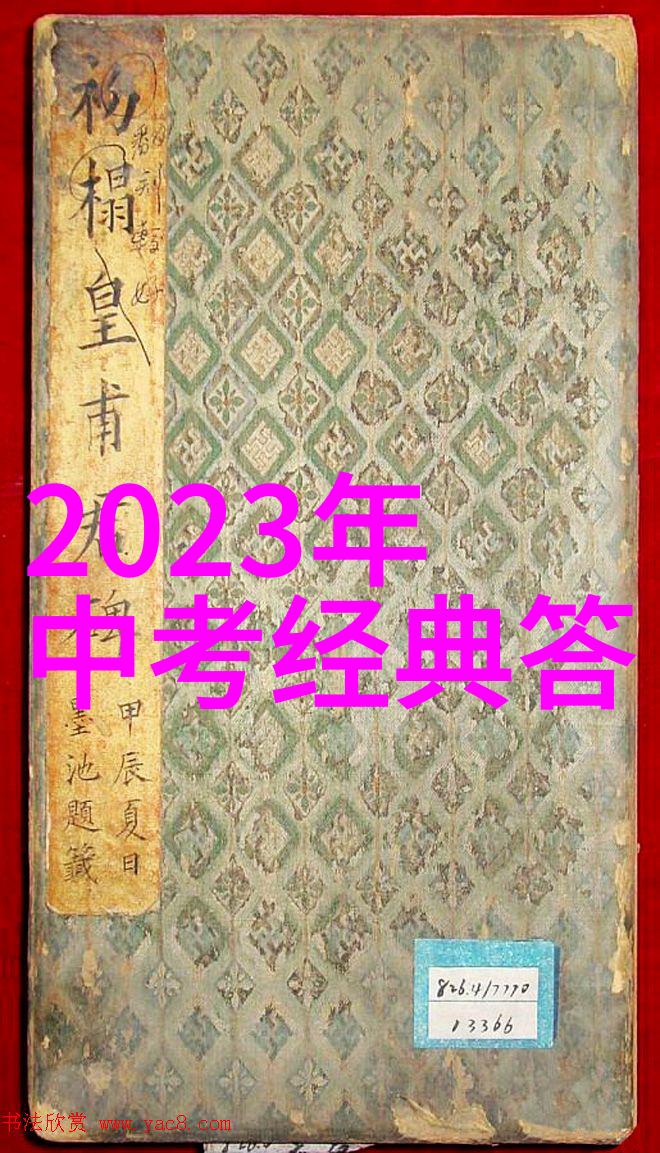 初榻皇甫君碑
翻刻較好
甲辰夏日
墨池題籤
2023年
中考经典答
826.4/7770
13366
书法欣赏 www.yac8.com